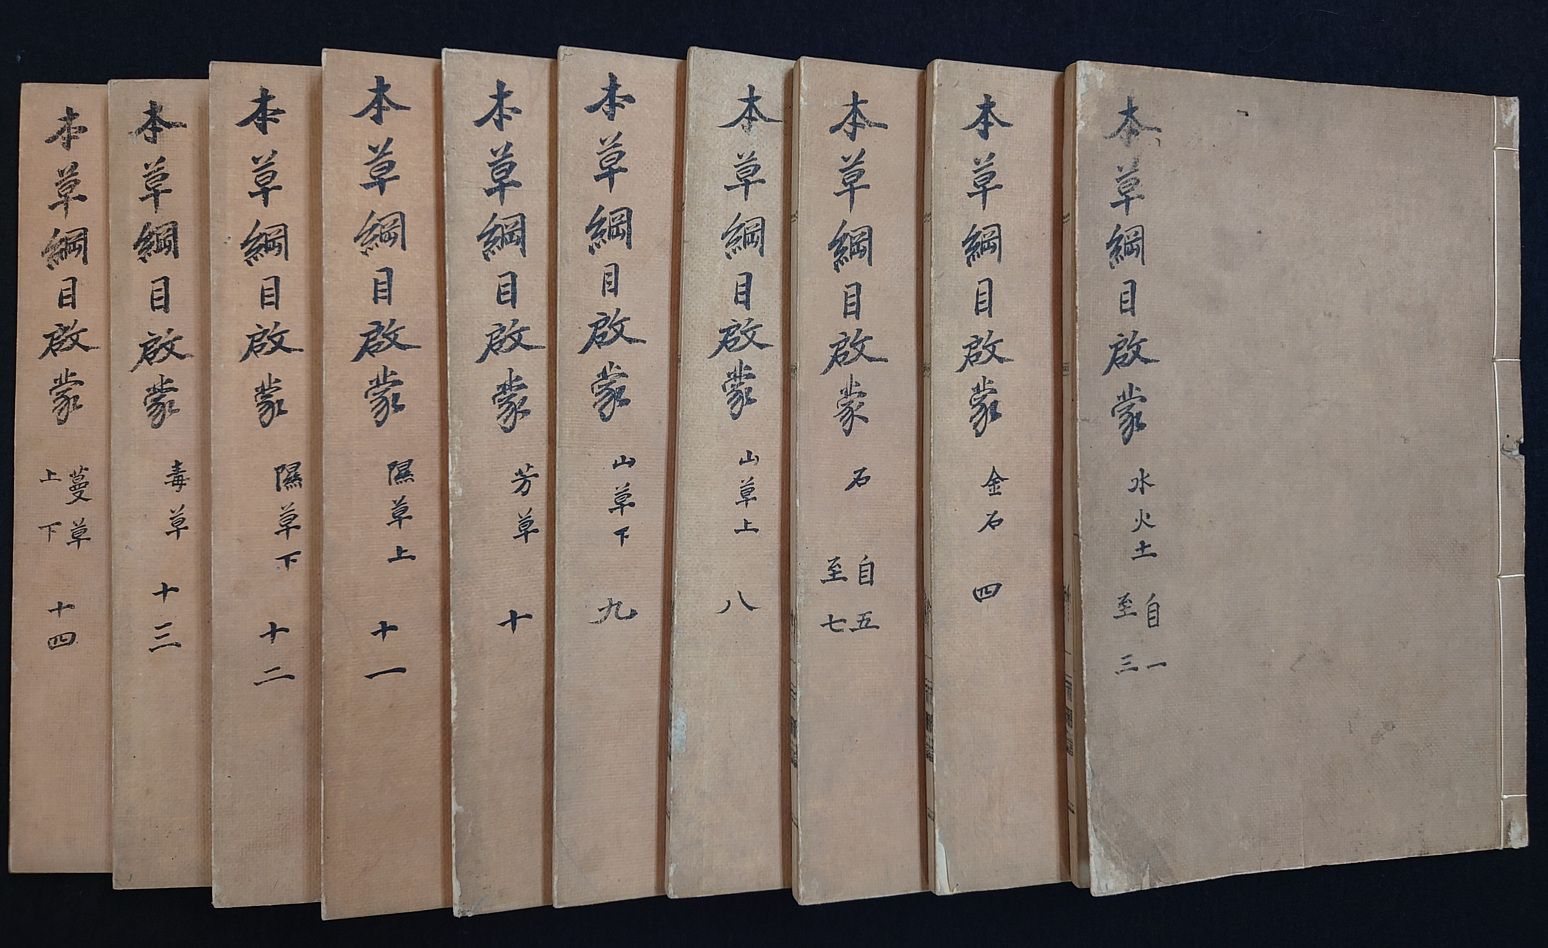 本草綱目啟蒙 水火土 自一至三
本草綱目啟蒙 金石 四
本草綱目啟蒙 石 自五至七
本草綱目啟蒙 山草上 八
本草綱目啟蒙 山草下 九
本草綱目啟蒙 芳草 十
本草綱目啟蒙 隰草上 十一
本草綱目啟蒙 隰草下 十二
本草綱目啟蒙 毒草 十三
本草綱目啟蒙 蔓草上下 十四